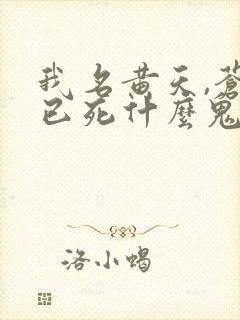 我名黄天,蒼
已死什麼鬼
洛小蝎